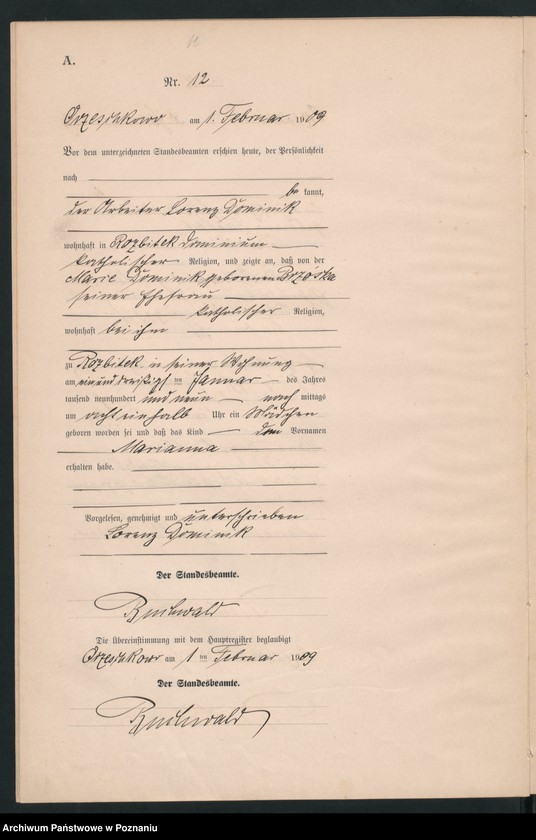 A.
Nr. 12
Orzeschkowo am 1. Februar 1909
Vor dem unterzeichneten Standesbeamten erschien heute, der Persönlichkeit
nach
bekannt,
der Arbeiter Lorenz Dominik
wohnhaft in Rozbitek Dominium
katholischer Religion, und zeigte an, daß von der
Marie Dominik geborenen Brzóska
seiner Ehefrau
katholischer Religion,
wohnhaft bei ihm
zu Rozbitek in seiner Wohnung
am einunddreißigsten Januar des Jahres
tausend neunhundert und neun nachmittags
um acht einhalb Uhr ein Mädchen
geboren worden sei und daß das Kind den Vornamen
Marianna
erhalten habe.
Vorgelesen, genehmigt und unterschrieben
Lorenz Dominik
Der Standesbeamte.
Buchwald
Die Übereinstimmung mit dem Hauptregister beglaubigt
Orzeschkowo am 1 ten Februar 1909
Der Standesbeamte.
Buchwald
Archiwum Państwowe w Poznaniu